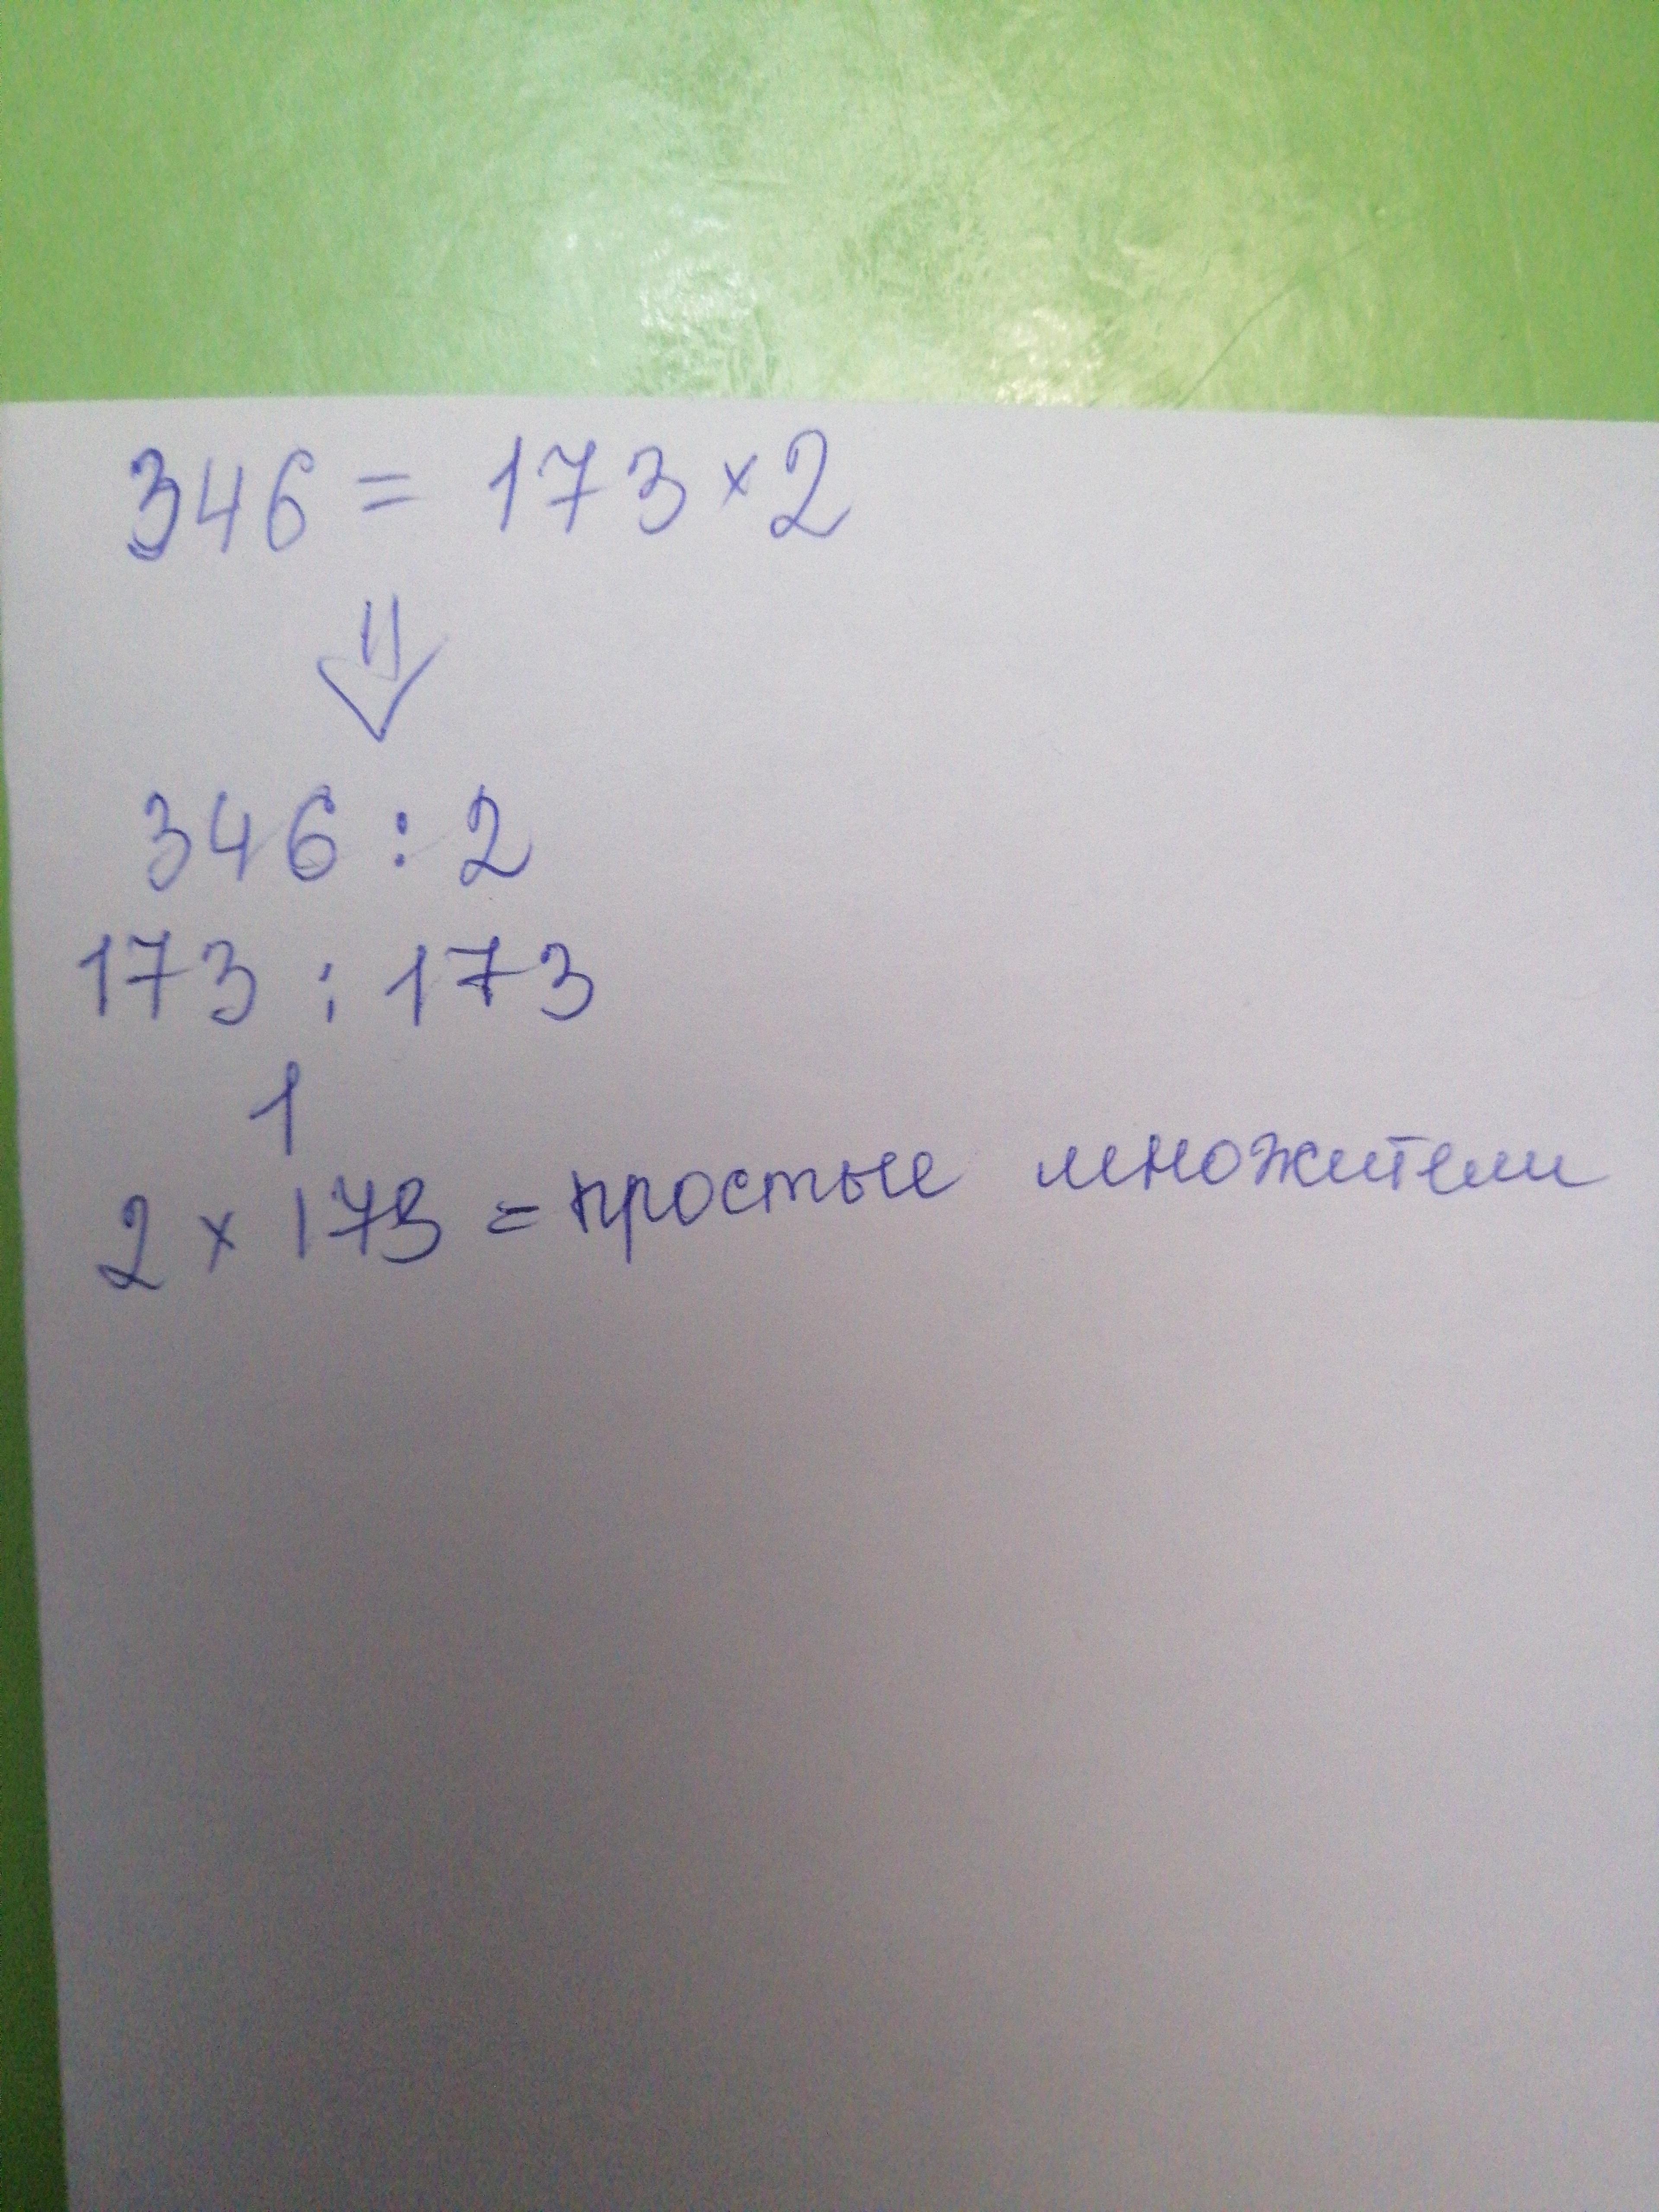 346 = 173 × 2
⇓
346 : 2
173 : 173
1
2 × 173 = простые множители